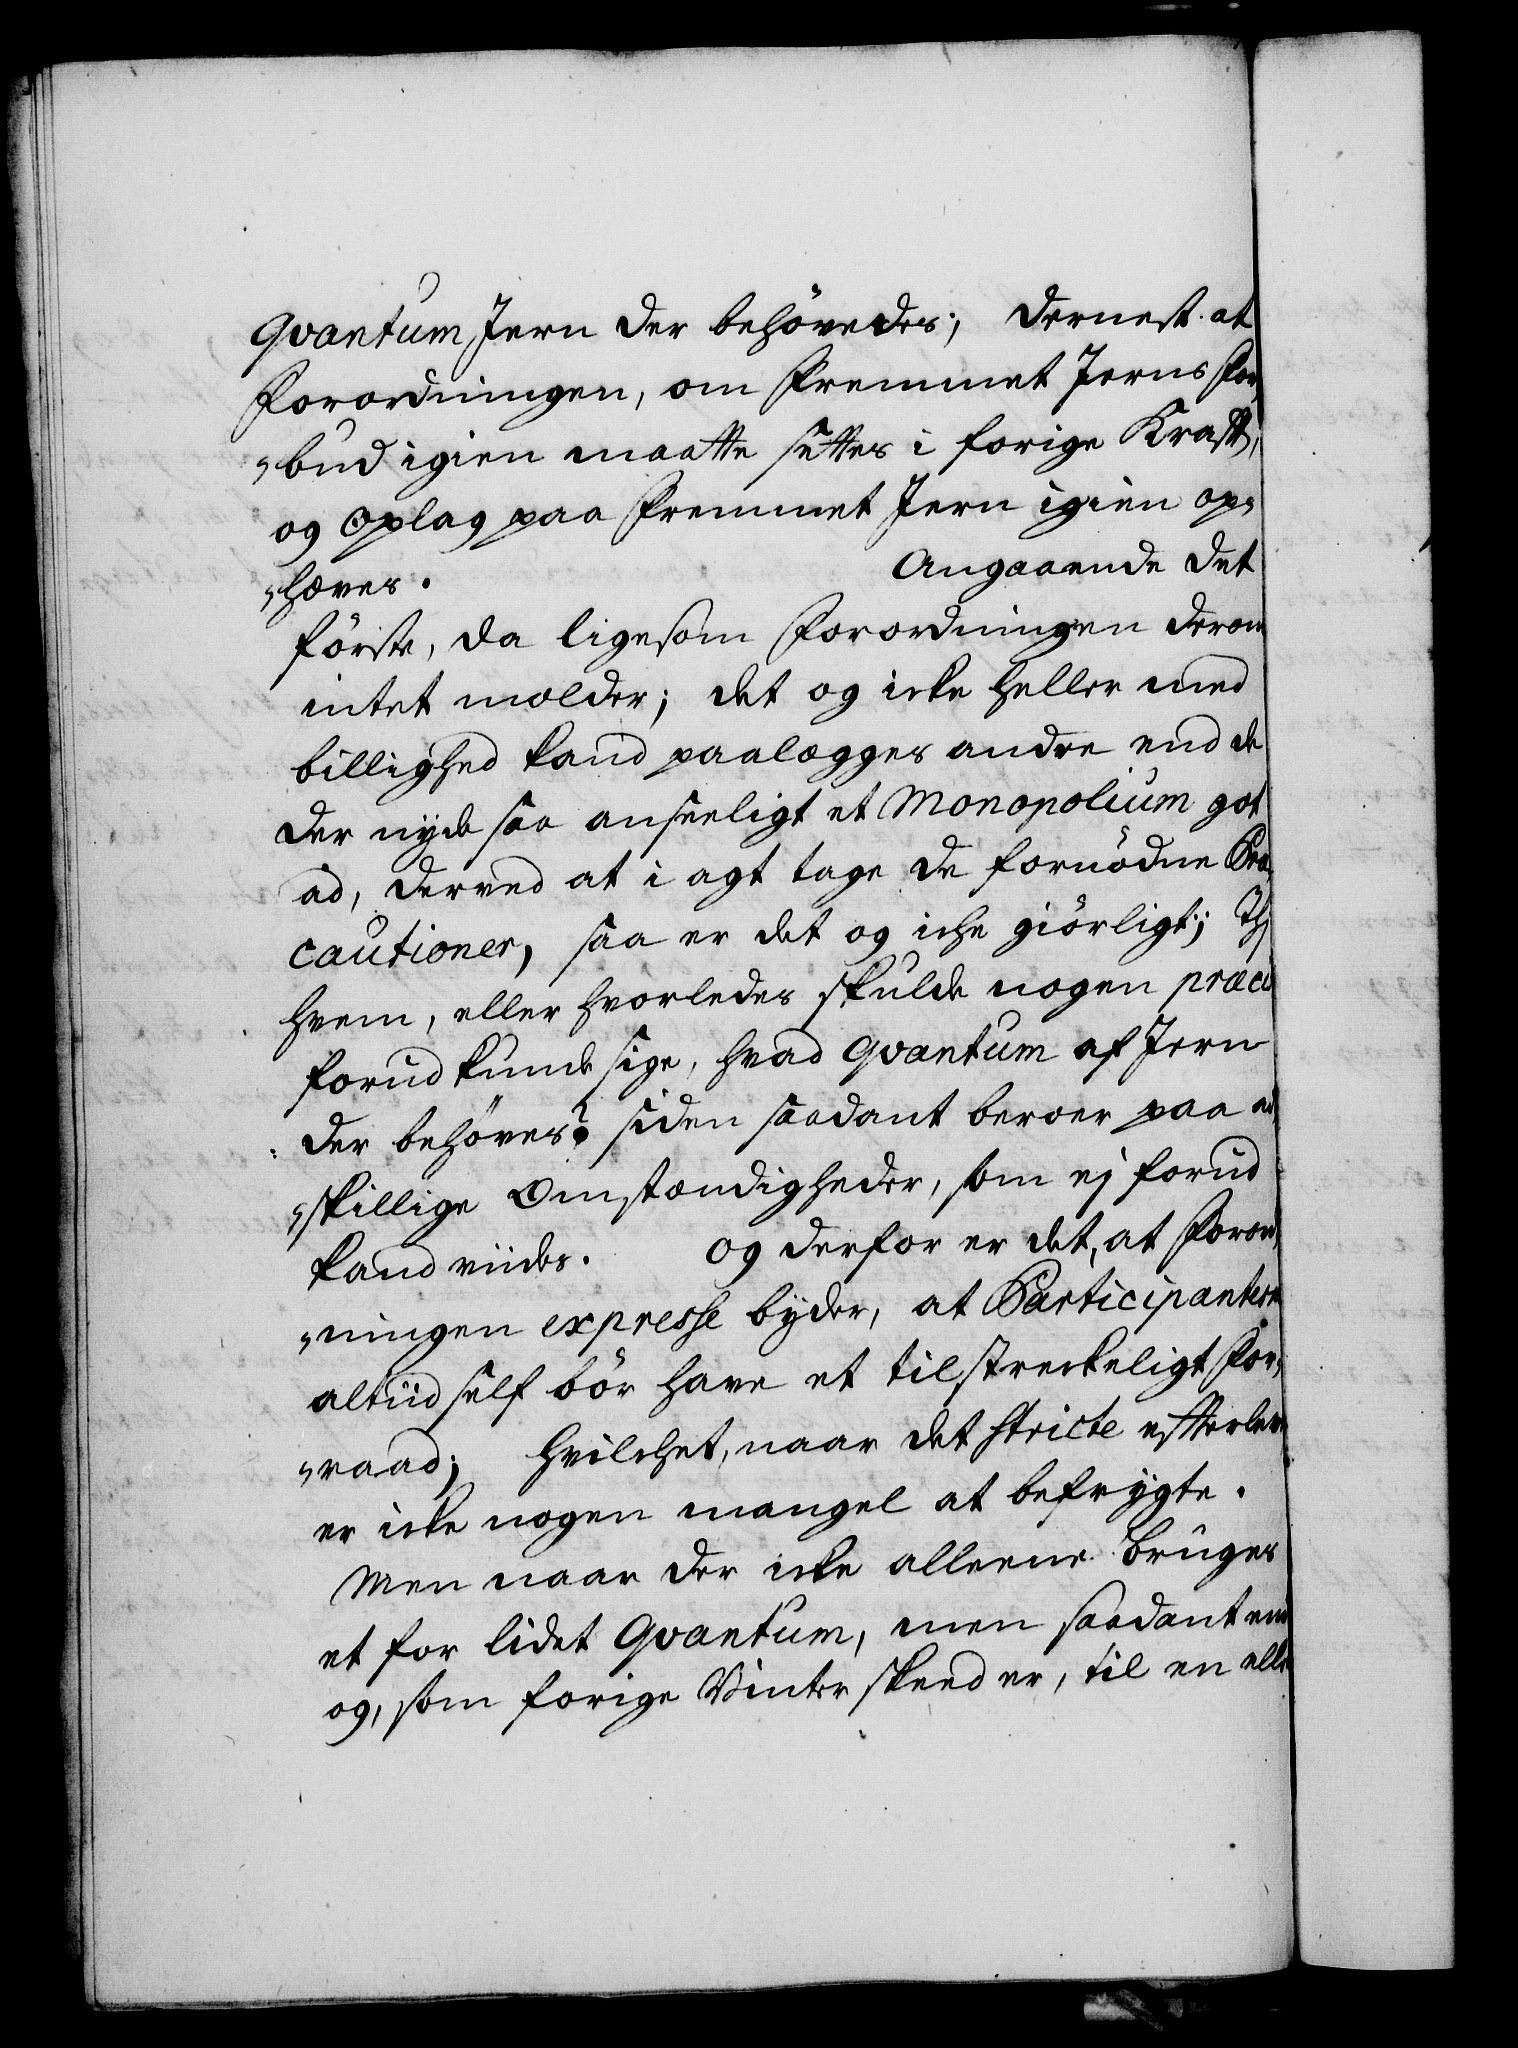 Qvantum Jern der behövedes; dernest at
Forordningen, om Fremmet Jerns For„
„bud igien maatte settes i forige Krafft,
og Oplag paa Fremmet Jern igien op„
„hæves. Angaaende det
förste, da ligesom Forordningen derom
intet melder; det og icke heller med
billighed kand paalægges andre end de
der nyde saa anseeligt et Monopolium got
ad, derved at i agt tage de fornödne Præ„
cautioner, saa er det og iche giörligt; Thi
hvem, eller hvorledes skulde nogen præci
forud kunde sige, hvad Qvantum af Jern
der behöves? siden saadant beroer paa ad„
„skillige Omstændigheder, som ej forud
kand viides. Og derfor er det, at Forord„
„ningen expresse byder, at Participanterne
altiid self bör have et tilstreckeligt For„
„raad; hvilchet, naar det stricte effterleves
er icke nogen mangel at befrygte.
Men naar der icke alleene bruges
et for lidet Qvantum, men saadant end
og, som forige Vinter skeed er, til en eller